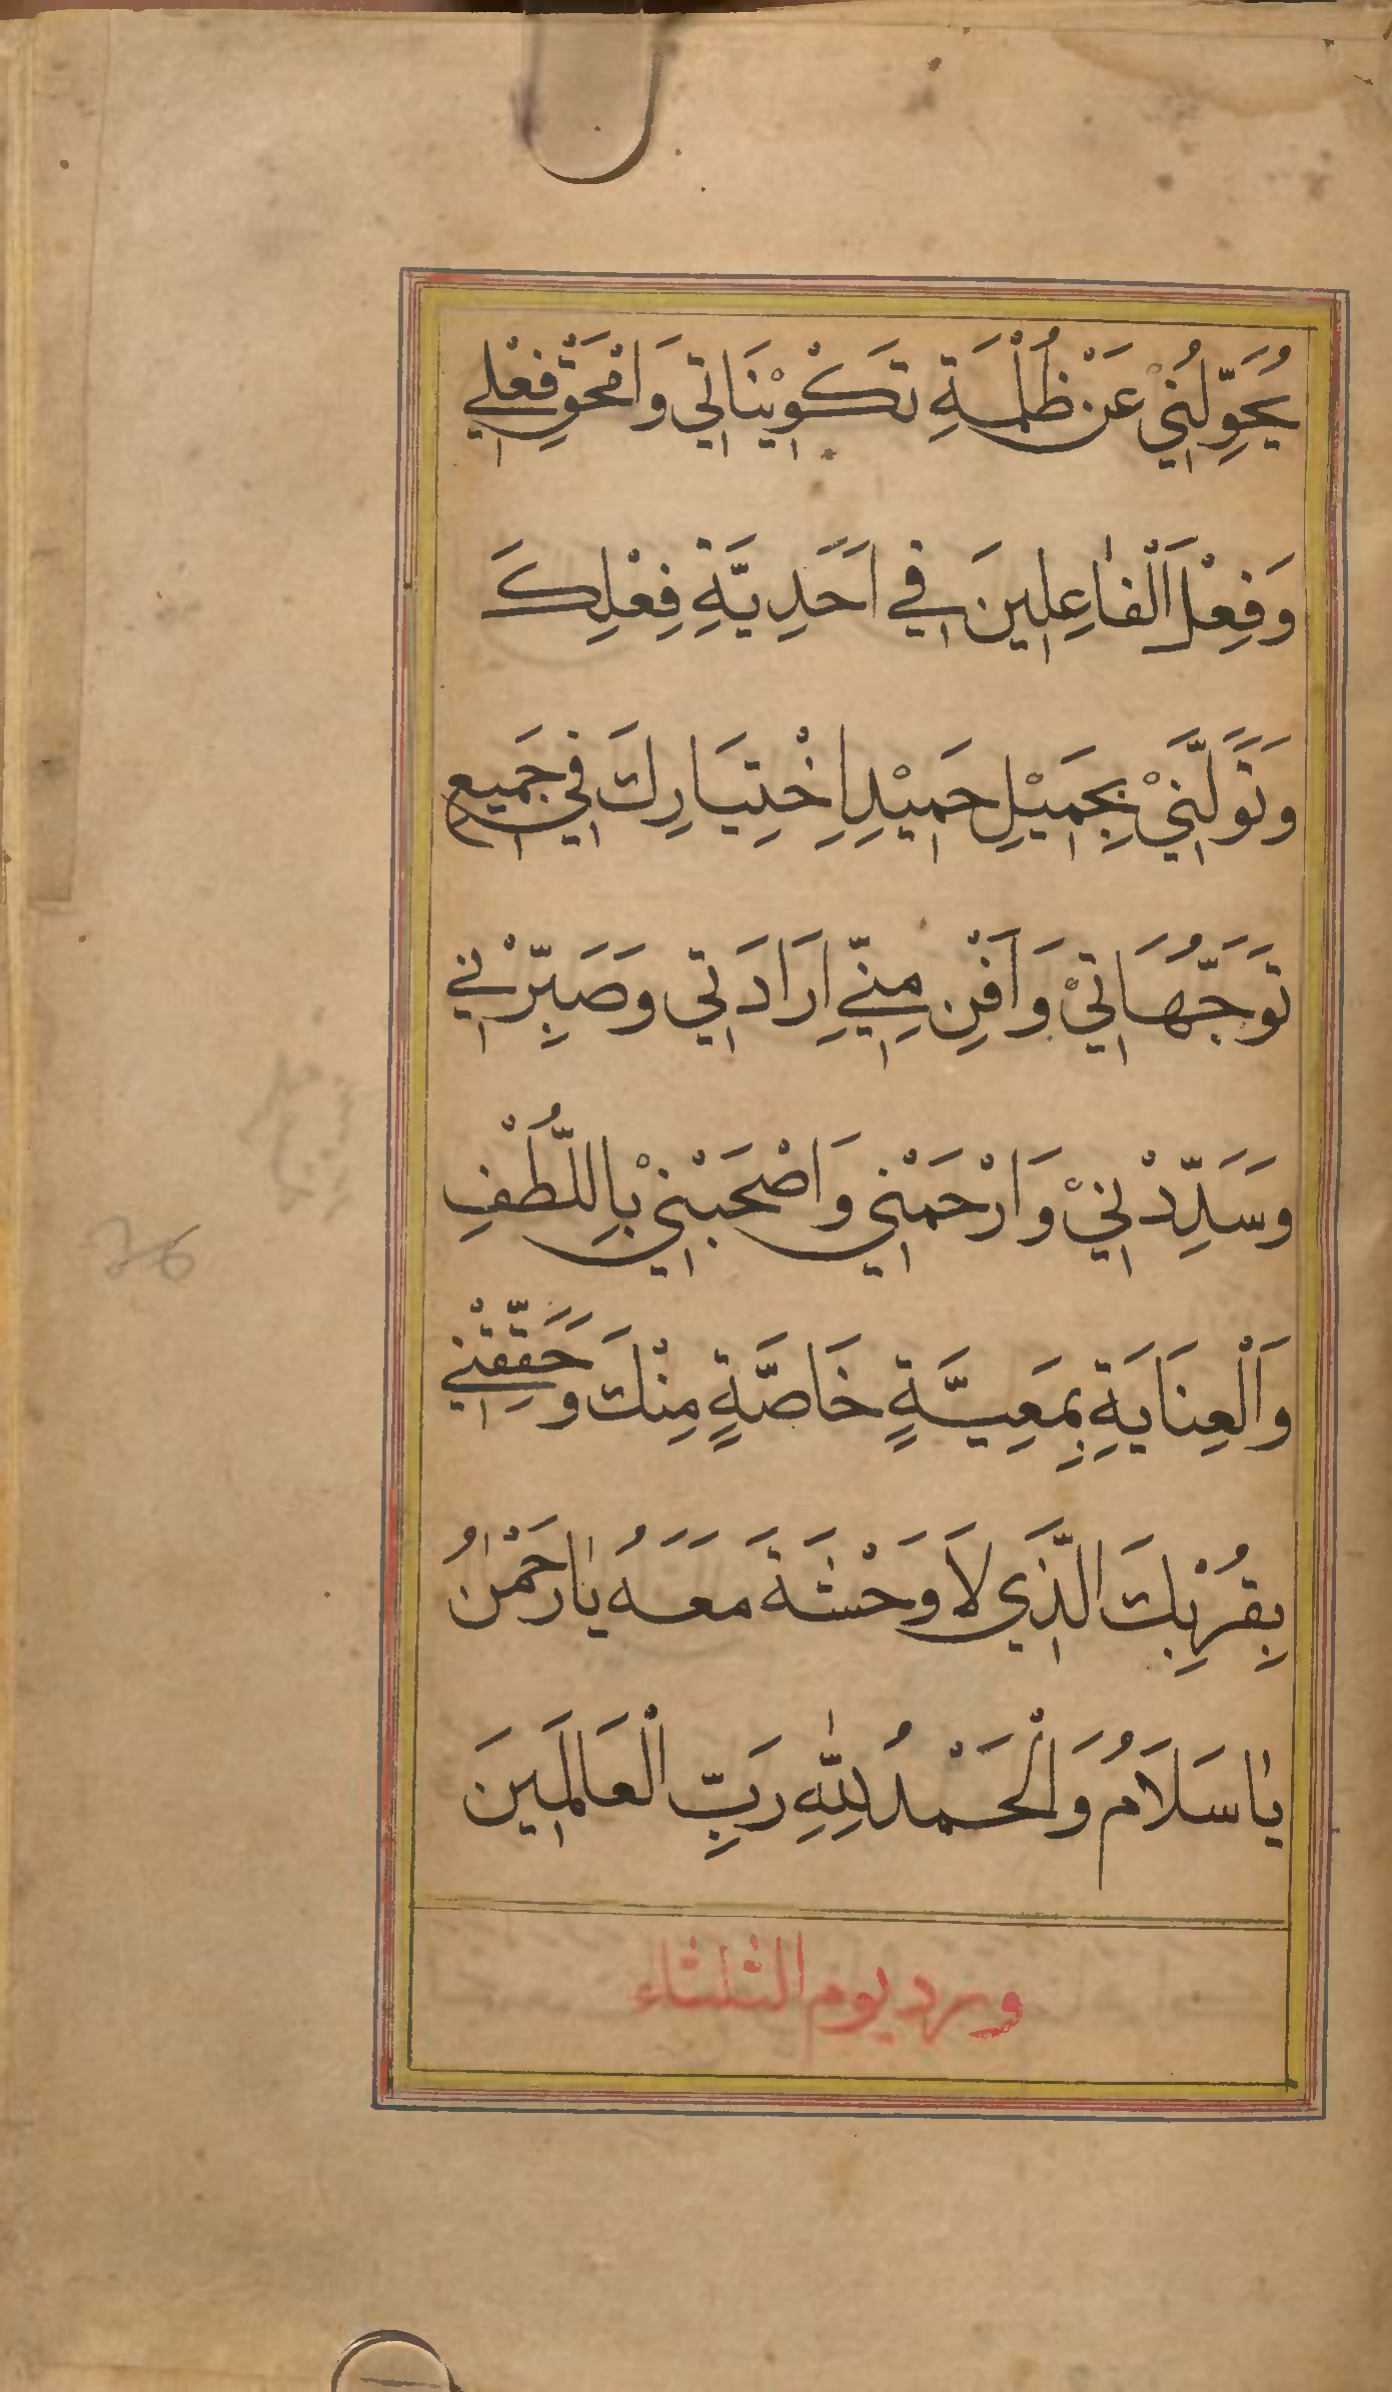 يُحَوِّلُنِيْ عَنْ ظُلْمَةِ تَكْوِيْنَاتِي وَامْحَقْ فِعْلِي
وَفِعْلَ الْفَاعِلِينَ فِي اَحَدِيَّةِ فِعْلِكَ
وَتَوَلَّنِيْ بِجَمِيْلِ حَمِيْدِ اِخْتِيَارِكَ فِي جَمِيعِ
تَوَجُّهَاتِيْ وَاَفْنِ مِنِّي اِرَادَتِي وَصَبِّرْنِي
وَسَدِّدْنِيْ وَارْحَمْنِي وَاصْحَبْنِيْ بِاللُّطْفِ
وَالْعِنَايَةِ بِمَعِيَّةٍ خَاصَّةٍ مِنْكَ وَحَقِّقْنِي
بِقُرْبِكَ الَّذِي لَا وَحْشَةَ مَعَهُ يَا رَحْمٰنُ
يَا سَلَامُ وَالْحَمْدُ لِلّٰهِ رَبِّ الْعَالَمِينَ
ورد يوم الثلثاء
36